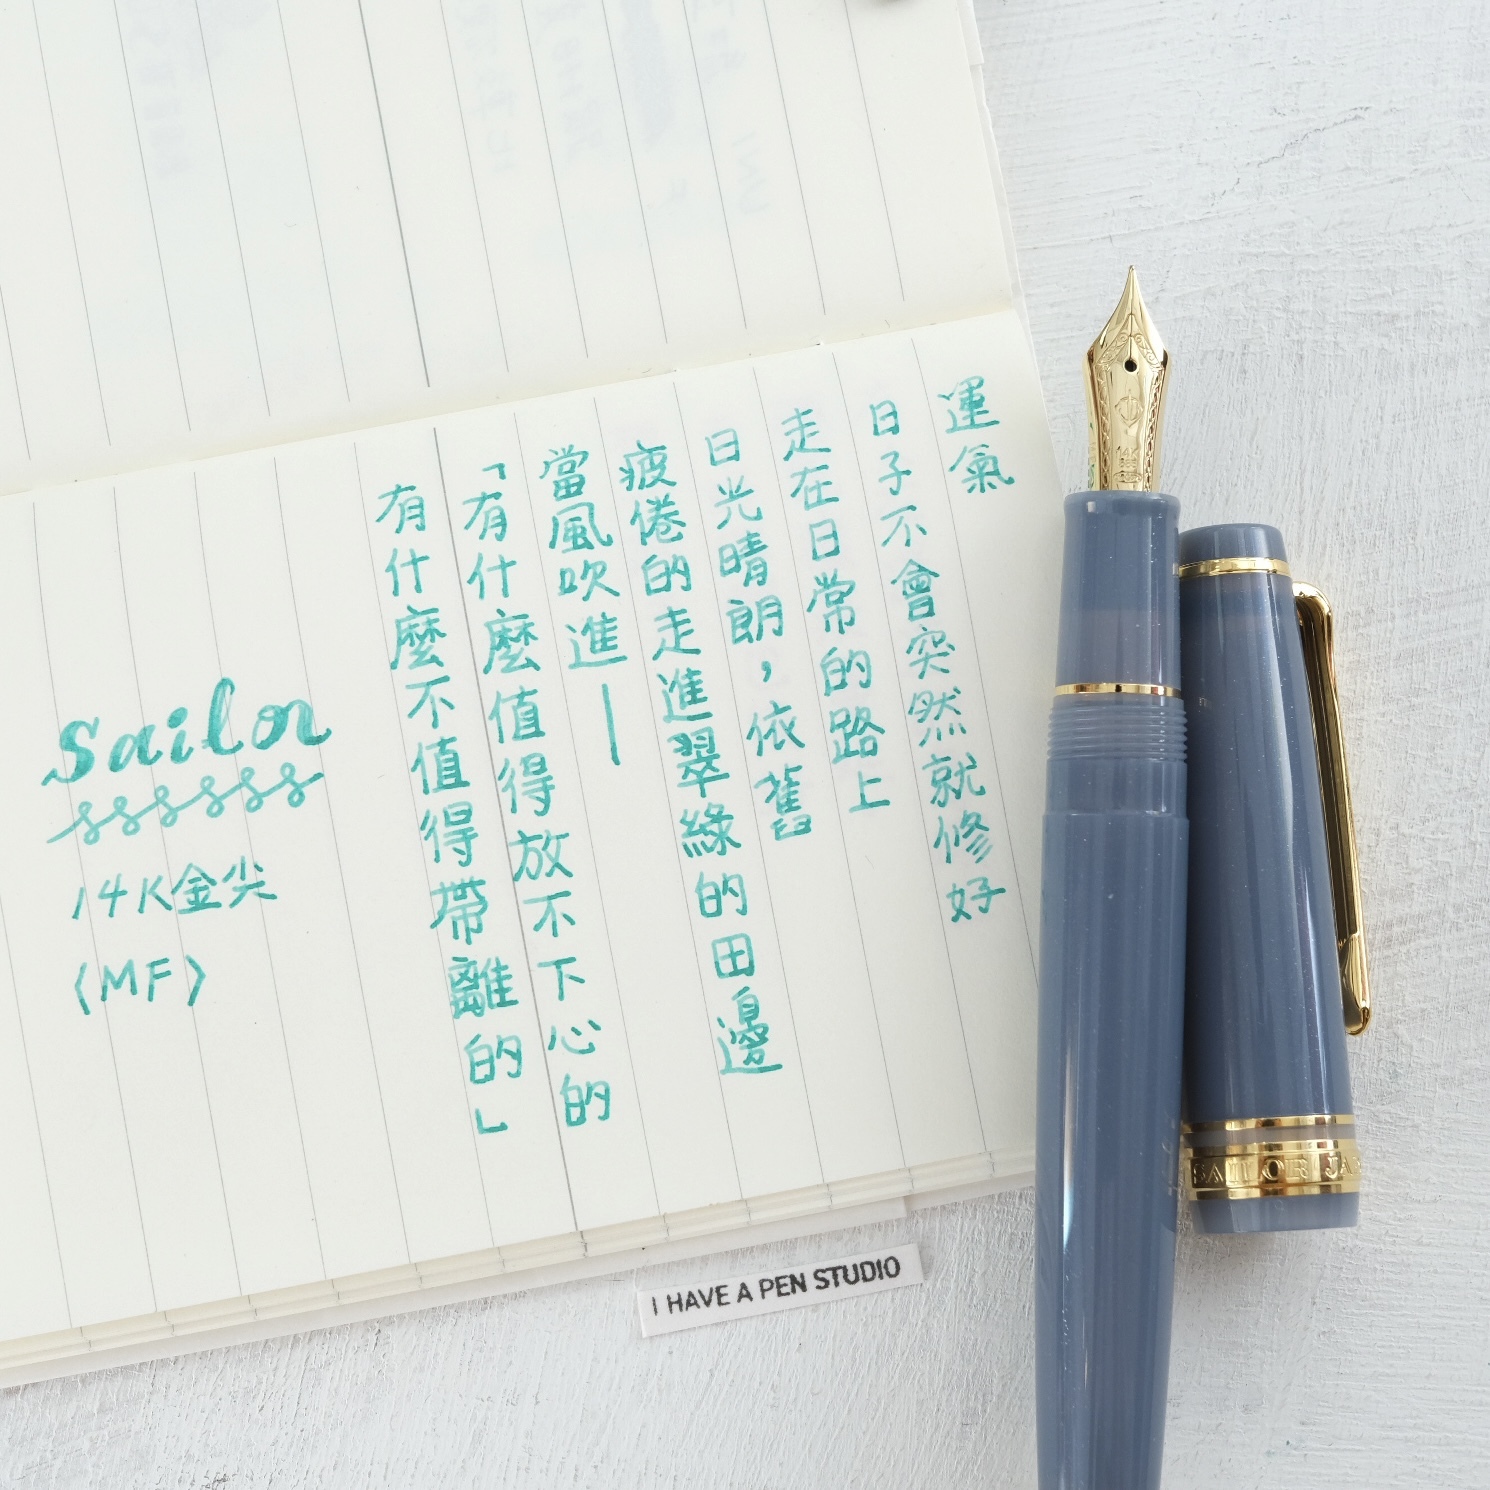 運氣
日子不會突然就修好
走在日常的路上
日光晴朗，依舊
疲倦的走進翠綠的田邊
當風吹進—
「有什麼值得放不下心的
有什麼不值得帶離的」
Sailor
14K金尖
〈MF〉
I HAVE A PEN STUDIO
14K
SAILOR JA